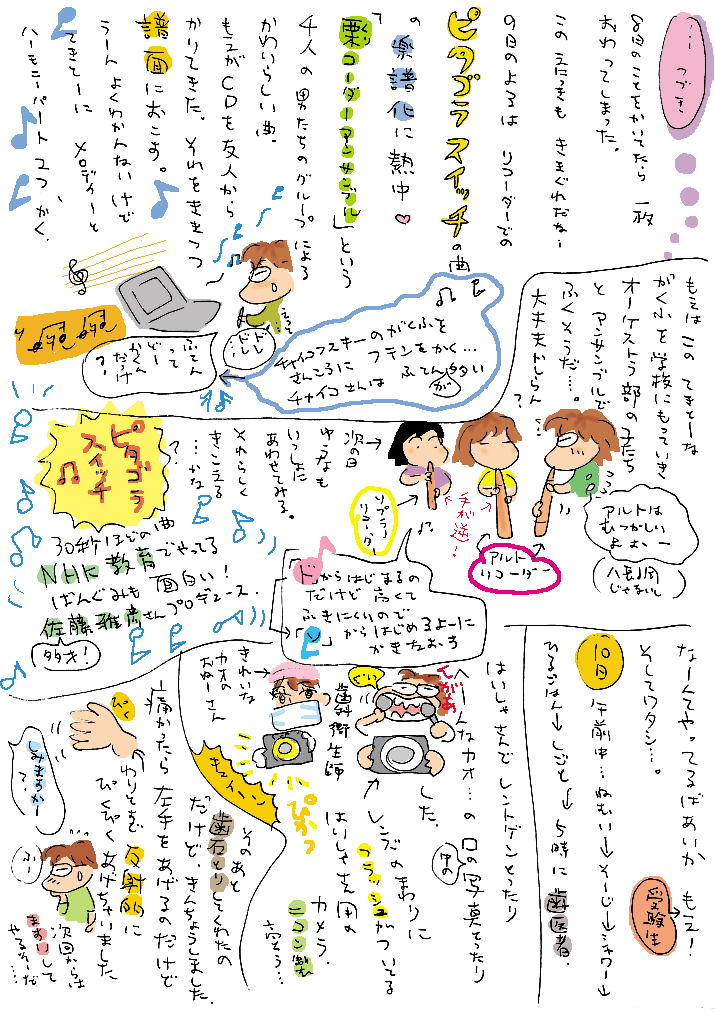 … つづき
8日のことをかいてたら 一枚
おわってしまった。
このえにっきも きまぐれだな…
9日のよるは リコーダーでの
ピタゴラスイッチの曲
の楽譜化に熱中♡
「栗コーダーカルテット」という
4人の男たちのグループによる
かわいらしい曲。
もえがCDを友人から
かりてきた。それをききつつ
譜面におこす。
うーん よくわかんないけど
てきとーに メロディーと
ハーモニーパート 2つ かく、
もえは この てきとーな
がくふを 学校にもっていき
オーケストラ部の子たち
と アンサンブルで
ふくそうだ…。
大丈夫かしらん…?
チャイコフスキーのがくふを
さんこうに フテンをかく…
チャイコさんは ふてんが多い
ドレドレ…
ふてん
って
どー
かくん
だっけ
?
次の日
ゆうなも
いっしょに
あわせてみる。
それらしく
きこえる
…かな
?
ソプラノリコーダー
手が逆!
アルトリコーダー
アルトは
むつかしい
よねー
(ハ長調じゃないし)
ピタゴラスイッチ
30秒ほどの曲
NHK教育でやってる
ばんぐみも 面白い!
佐藤雅彦さんプロデュース.
多才!
「ド」からはじまるの
だけど 高くて
ふきにくいので
「ソ」からはじめるよーに
かきなおす
なーんてやってるばあいか もえ!
受験生
そしてワタシ…。
10日 午前中… ねむい→そーじ→シャワー→
ひるごはん→しごと→5時に歯医者.
はいしゃさんでレントゲンとったり
へんなカオ…の 口の中の写真とったり
しました.
いがあ
ぐい
レンズのまわりに
フラッシュがついてる
はいしゃさん用の
カメラ.
ニコン製
高そう…
歯科衛生士
きれいな
カオの
おねーさん
ぴかっ
キュイーン
そのあと
歯石とりしてくれたの
だけど、きんちょうしました.
痛かったら左手をあげるのだけど
わりとまで 反射的に
ぴくぴくあげちゃいました
ぴく
しみますかー?
ふー
次回からは
ますいして
やるそーだ…